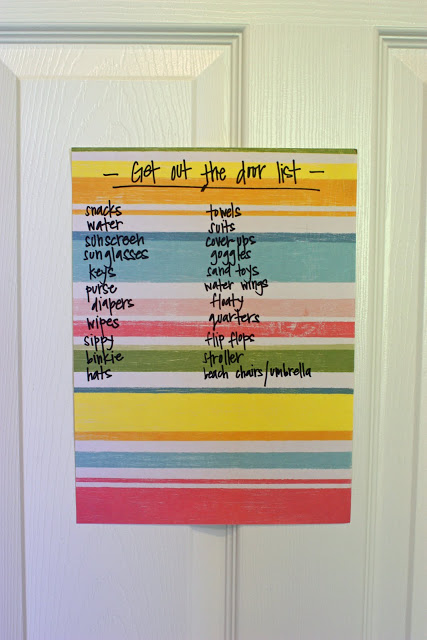 — Get out the door list —
snacks
water
sunscreen
sunglasses
keys
purse
diapers
wipes
sippy
binkie
hats
towels
suits
cover-ups
goggles
sand toys
water wings
floaty
quarters
flip flops
stroller
beach chairs/umbrella